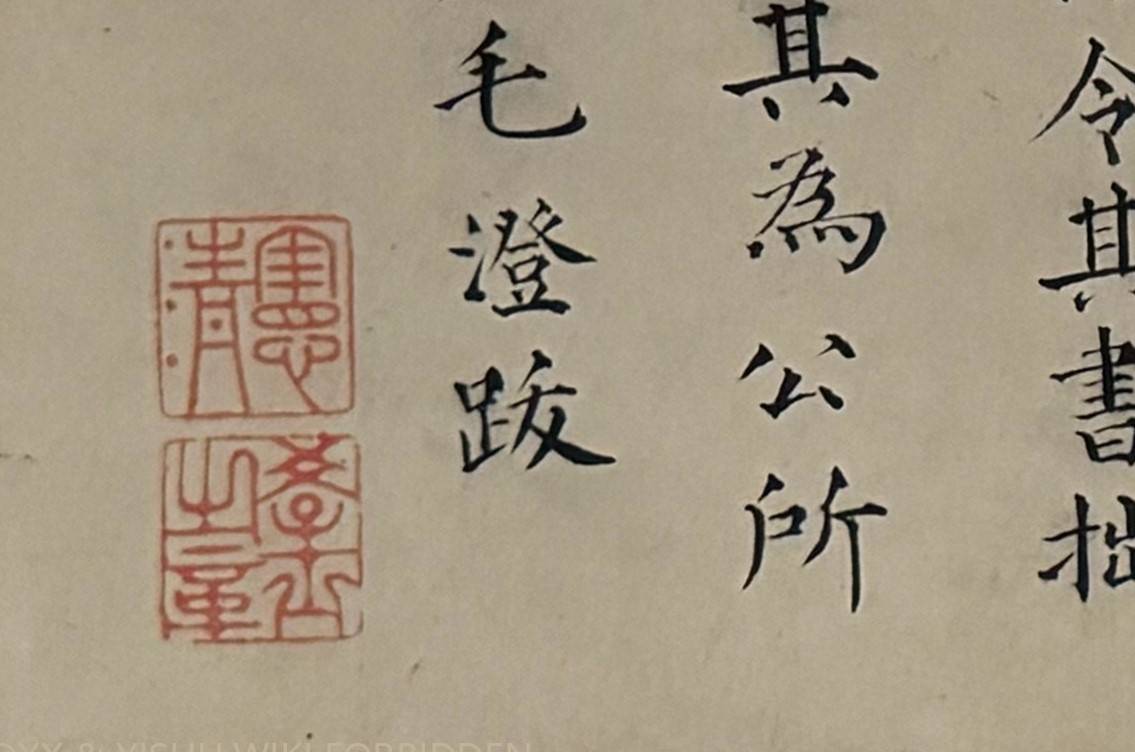 令其書拙
其為公所
毛澄跋
憲清